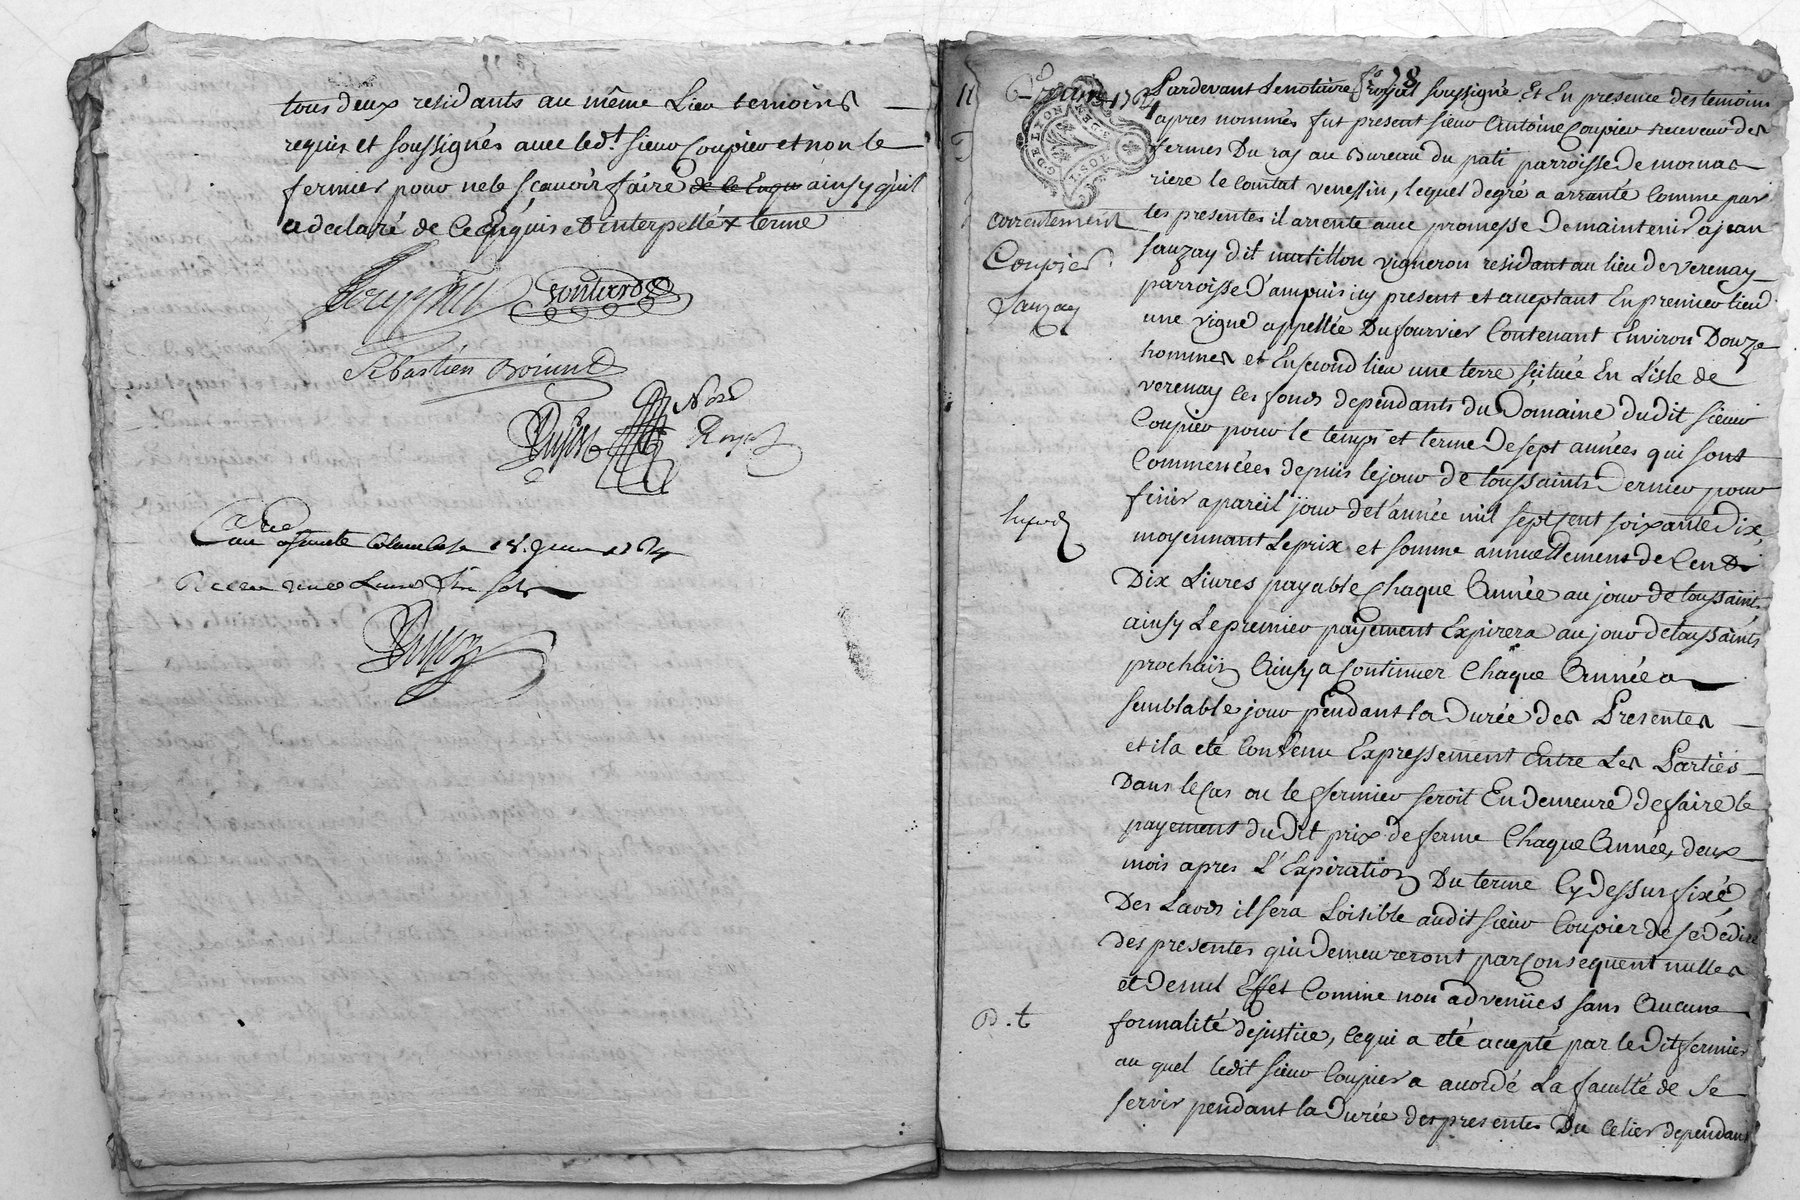 tous deux residants au même Lieu temoins
requis et soussignés avec led.t sieur Coupier et non le
fermier pour ne le sçavoir faire de ce enqu ainsy qu'il
a declaré de ce enquis et interpellé x terme
Sébastien
Dujoz Nore
Royal
Con.lé a Sainte Colombe le 18. 1764
Receu Livres Six sols
Dujoz
f.o 78
11
1764
G. DE LYON
arrentement
Coupier
Sauzay
D. t
Pardevant Le notaire royal soussigné et En presence des temoins
apres nommés fut present sieur Antoine Coupier receveur des
fermes Du roy au Bureau du pati parroisse de mornas
riere le Comtat venessin, lequel de gré a arranté Comme par
les presentes il arrente avec promesse De maintenir a jean
sauzay dit matillon vigneron residant au lieu de verenay
parroisse D'ampuis icy present et aceptant En premier lieu
une vigne appellée Du fourvier Contenant Environ Douze
hommes et En second lieu une terre scituée En L'isle de
verenay les fonds dependants du Domaine dudit sieur
Coupier pour le temps et terme De sept années qui sont
Commencées depuis le jour de toussaints Dernier pour
finir a pareil jour de l'année mil sept cent soixante Dix,
moyennant Le prix et somme annuellement de Cent
Dix Livres payable Chaque Année au jour de toussaints
ainsy Le premier payement Expirera au jour de toussaints
prochain Ainsy a Continuer Chaque Année a
semblable jour pendant la Durée des Presentes
et il a eté Convenu Expressement Entre Les Parties
Dans le Cas ou le fermier seroit En demeure de faire le
payement du Dit prix de ferme Chaque Année, deux
mois apres L'Expiration Du terme Cy Dessus fixé
Des Lavds il sera Loisible audit sieur Coupier de se dédire
des presentes qui demeureront par Consequent nulles
et de nul Effet Comme non advenües sans Aucune
formalité de justice, ce qui a eté accepté par le Dit fermier
au quel ledit sieur Coupier a acordé La faculté de se
servir pendant la Durée des presentes Du Celier dependant